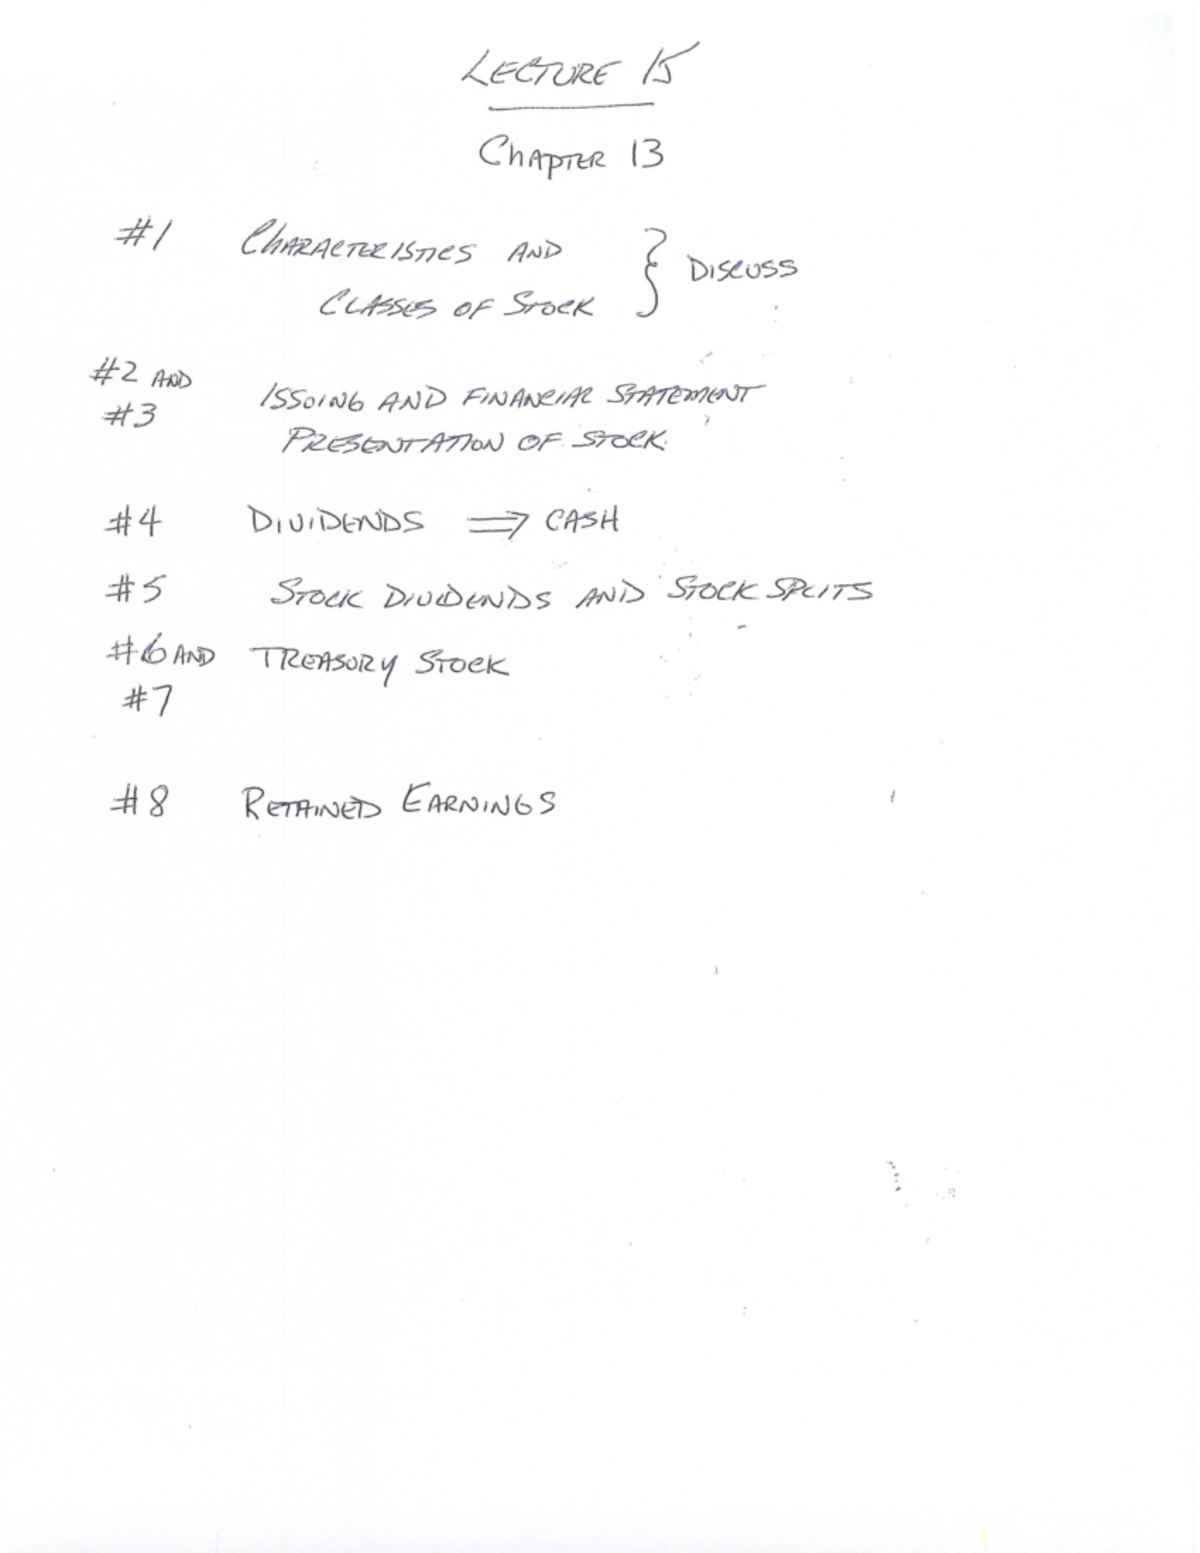 LECTURE 15
CHAPTER 13
#1 CHARACTERISTICS AND
CLASSES OF STOCK } DISCUSS
#2 AND
#3 ISSUING AND FINANCIAL STATEMENT
PRESENTATION OF STOCK
#4 DIVIDENDS ⇒ CASH
#5 STOCK DIVIDENDS AND STOCK SPLITS
#6 AND TREASURY STOCK
#7
#8 RETAINED EARNINGS